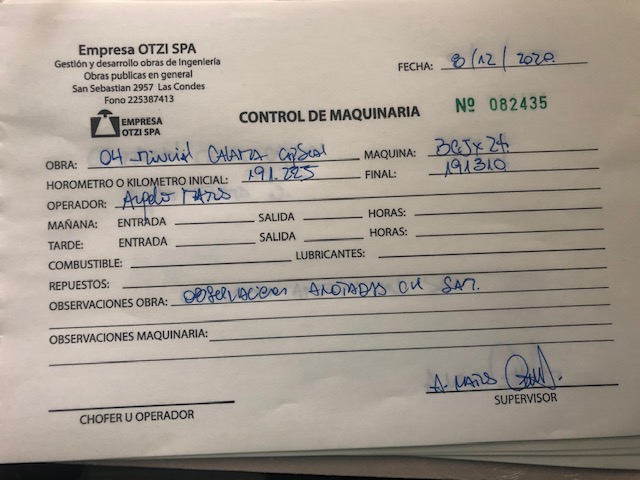 Empresa OTZI SPA
Gestión y desarrollo obras de Ingeniería
Obras publicas en general
San Sebastian 2957 Las Condes
Fono 225387413
FECHA: 8/12/2020
EMPRESA
OTZI SPA
CONTROL DE MAQUINARIA
Nº 082435
OBRA: 04 MAQUINA: BGJX24
HOROMETRO O KILOMETRO INICIAL: 191.285 FINAL: 191310
OPERADOR:
MAÑANA: ENTRADA SALIDA HORAS:
TARDE: ENTRADA SALIDA HORAS:
COMBUSTIBLE: LUBRICANTES:
REPUESTOS:
OBSERVACIONES OBRA: OBSERVACIONES ANOTADAS EN
OBSERVACIONES MAQUINARIA:
CHOFER U OPERADOR
SUPERVISOR